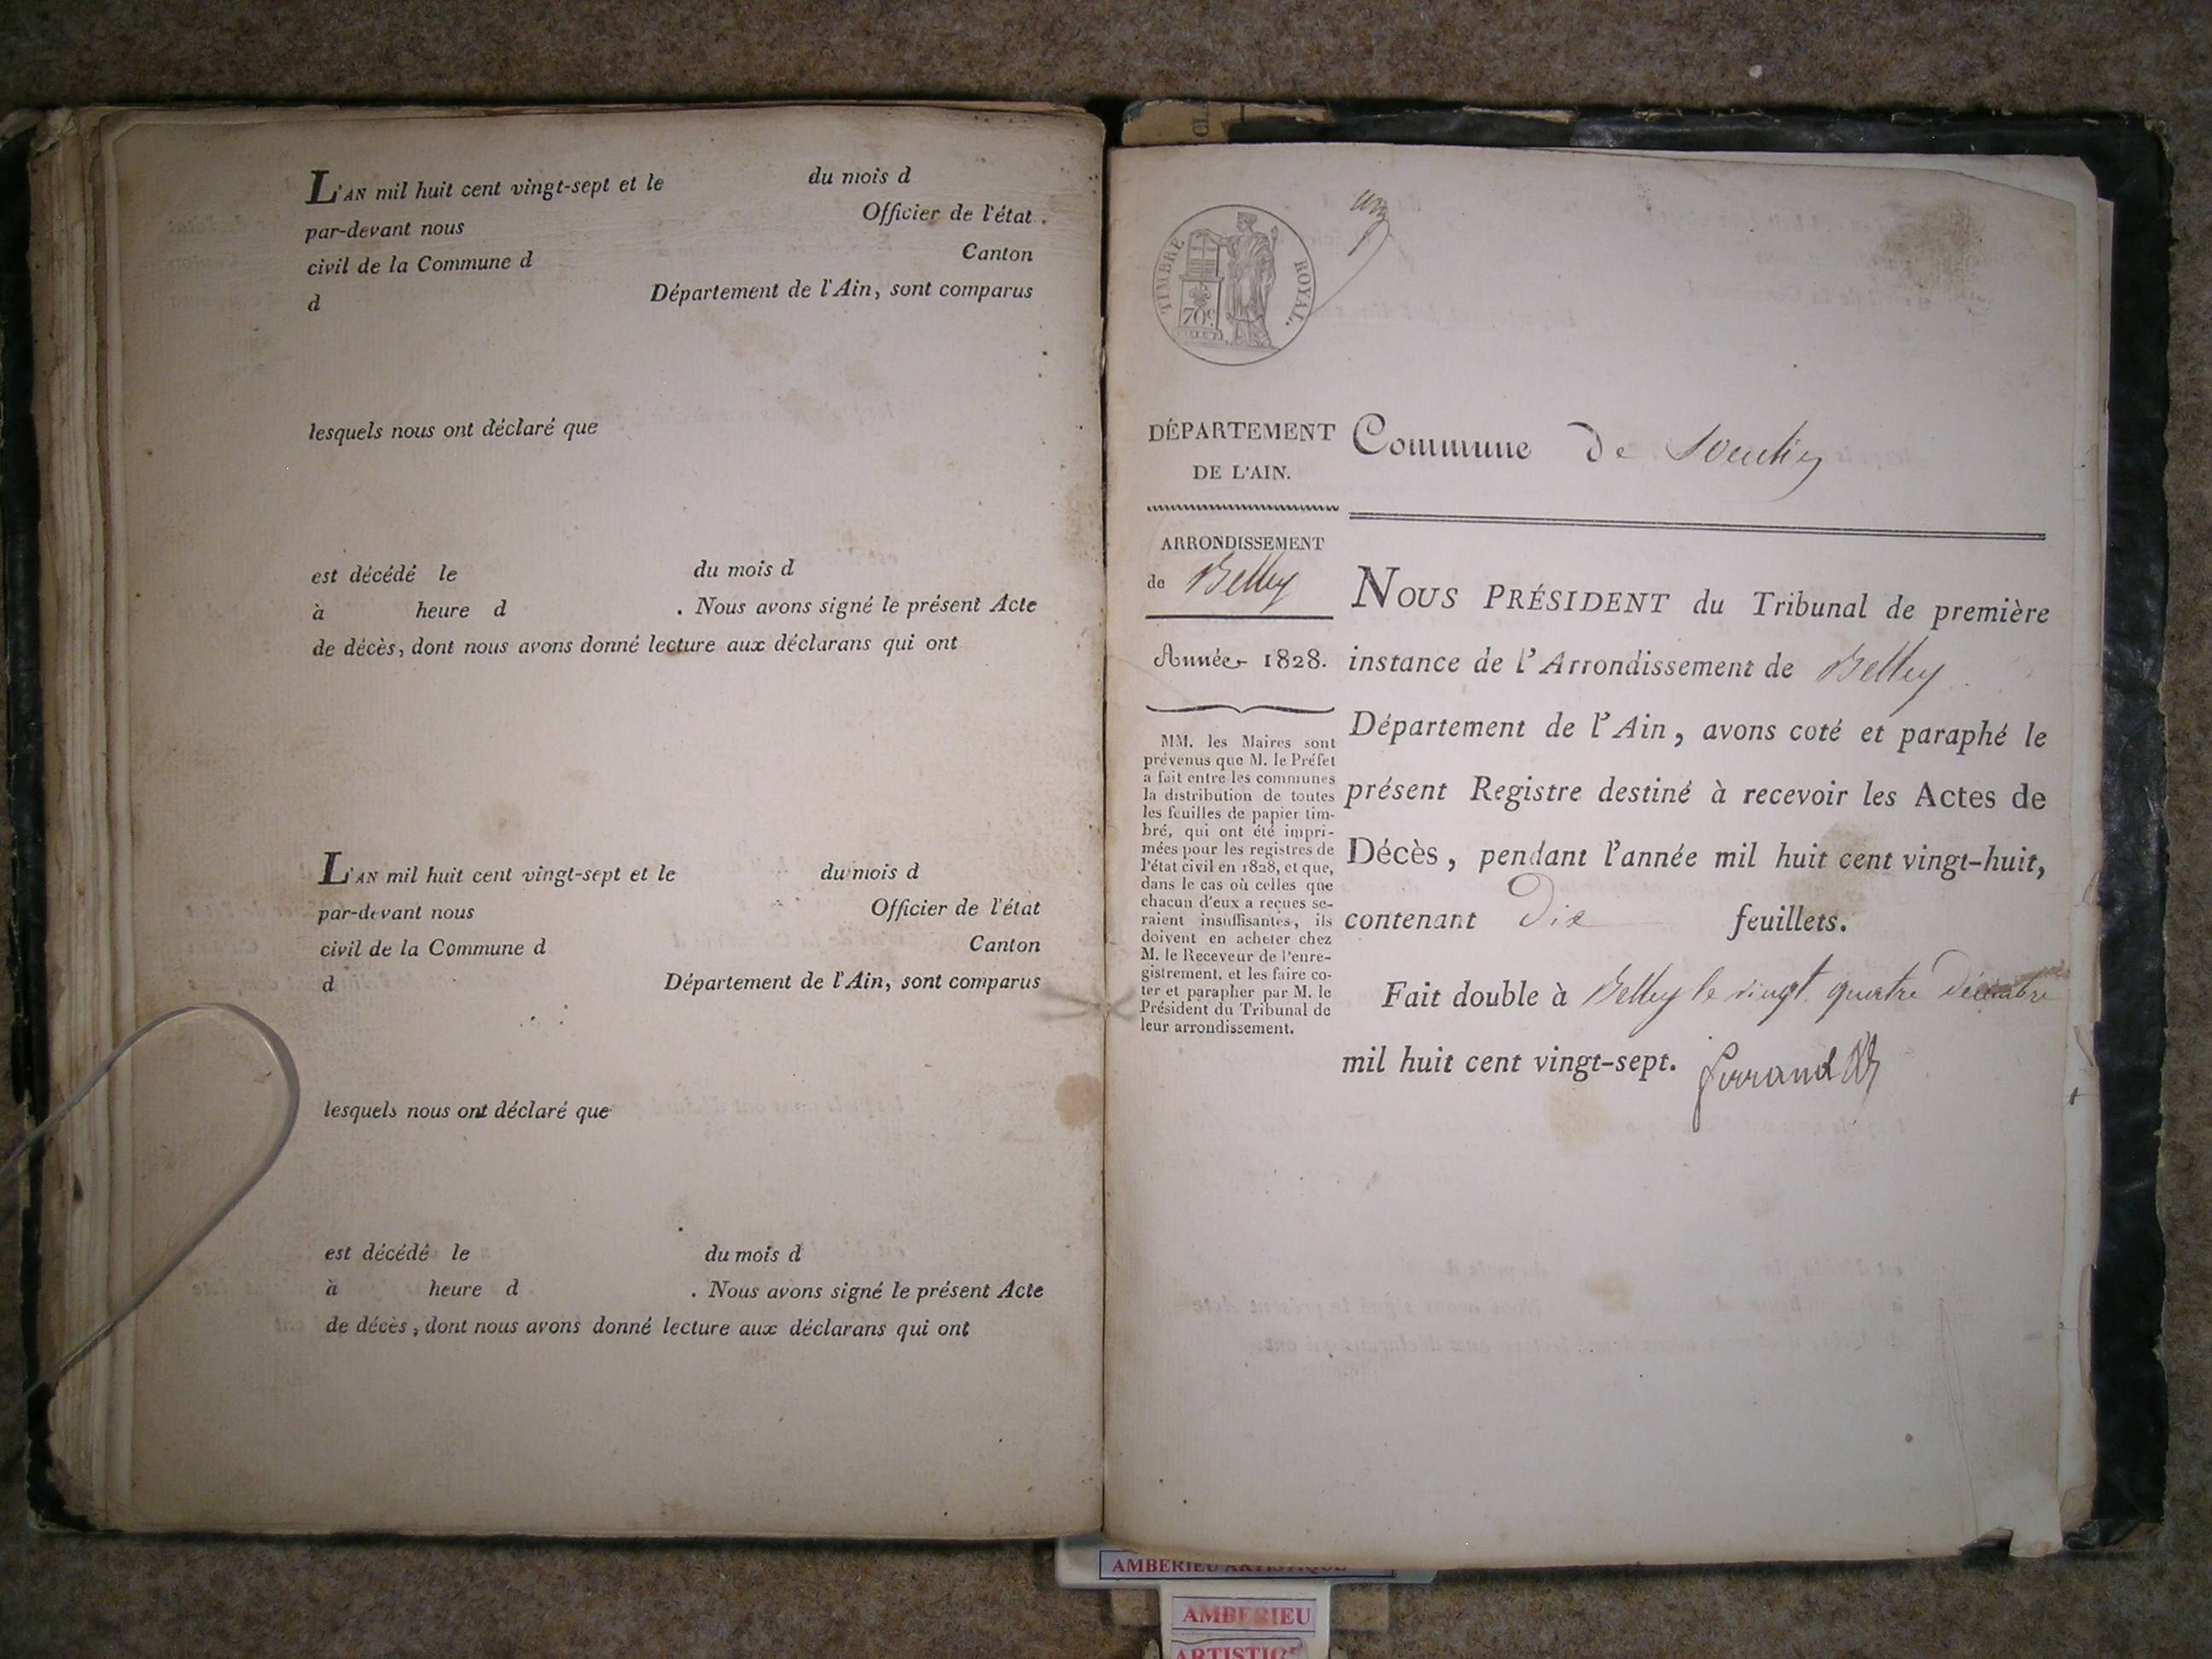 L'AN mil huit cent vingt-sept et le du mois d
par-devant nous Officier de l'état
civil de la Commune d Canton
d Département de l'Ain, sont comparus
lesquels nous ont déclaré que
est décédé le du mois d
à heure d . Nous avons signé le présent Acte
de décès, dont nous avons donné lecture aux déclarans qui ont
L'AN mil huit cent vingt-sept et le du mois d
par-devant nous Officier de l'état
civil de la Commune d Canton
d Département de l'Ain, sont comparus
lesquels nous ont déclaré que
est décédé le du mois d
à heure d . Nous avons signé le présent Acte
de décès, dont nous avons donné lecture aux déclarans qui ont
TIMBRE ROYAL.
70c
un
DÉPARTEMENT
DE L'AIN.
ARRONDISSEMENT
de Belley
Année 1828.
MM. les Maires sont
prévenus que M. le Préfet
a fait entre les communes
la distribution de toutes
les feuilles de papier tim-
bré, qui ont été impri-
mées pour les registres de
l'état civil en 1828, et que,
dans le cas où celles que
chacun d'eux a reçues se-
raient insuffisantes, ils
doivent en acheter chez
M. le Receveur de l'enre-
gistrement, et les faire co-
ter et parapher par M. le
Président du Tribunal de
leur arrondissement.
Commune de
NOUS PRÉSIDENT du Tribunal de première
instance de l'Arrondissement de Belley
Département de l'Ain, avons coté et paraphé le
présent Registre destiné à recevoir les Actes de
Décès, pendant l'année mil huit cent vingt-huit,
contenant Dix feuillets.
Fait double à Belley le vingt quatre décembre
mil huit cent vingt-sept. Ferrand
AMBERIEU ARTISTIQUE
AMBERIEU
ARTISTIQ